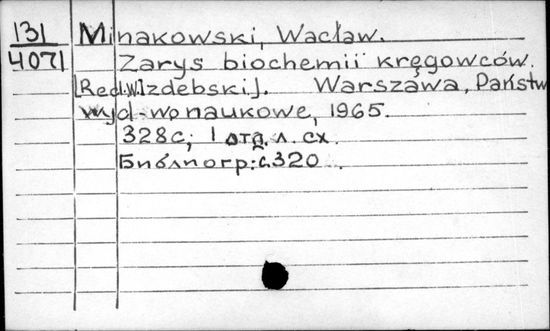 131 Minakowski, Wacław.
4071 Zarys biochemii kręgowców.
[Red. W. Izdebski]. Warszawa, Państw
wyd-wo naukowe, 1965.
328с; 1 отд. л. сх.
Библиогр: с. 320.